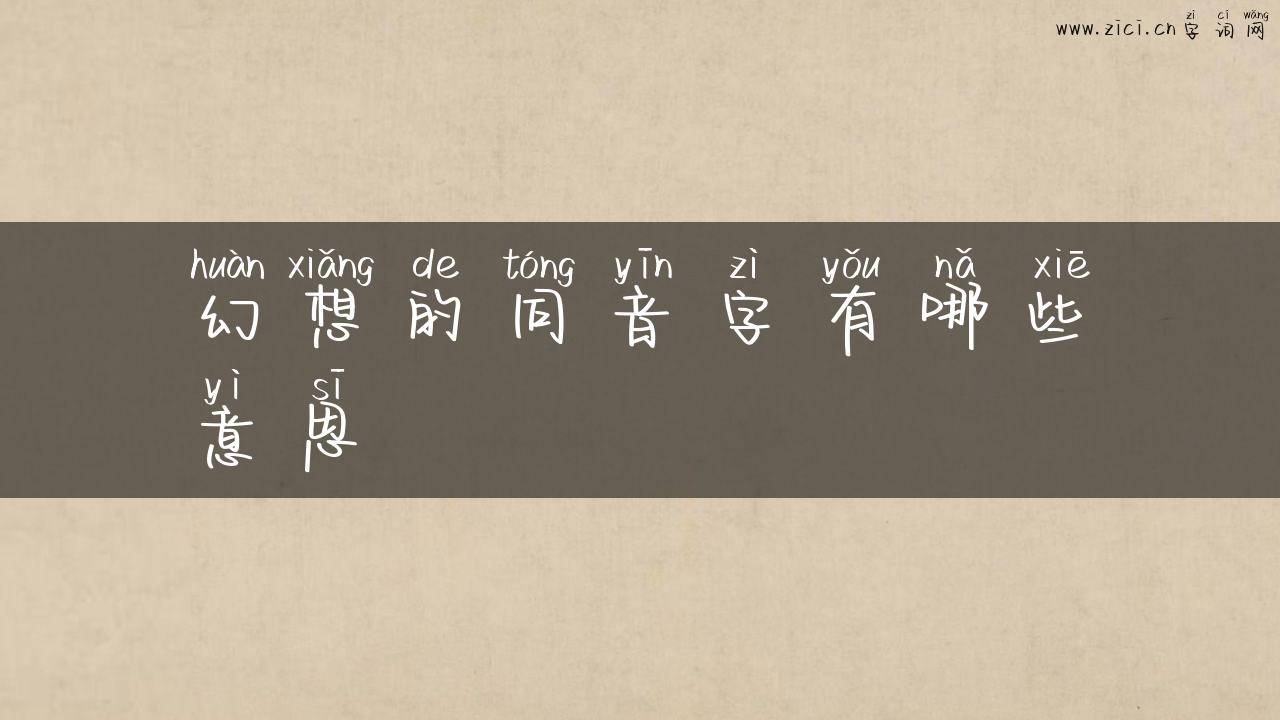 zì cí wǎng
www.zici.cn 字 词 网
huàn xiǎng de tóng yīn zì yǒu nǎ xiē
幻 想 的 同 音 字 有 哪 些
yì sī
意 思